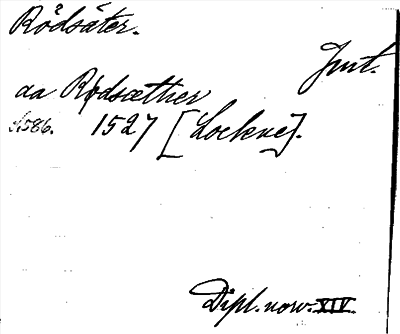 Rödsäter.
Jmt.
aa Rødsæther
S. 586. 1527 [Lockne].
Dipl. norv. XIV.